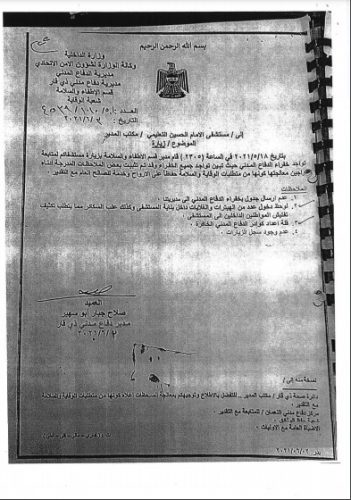 بسم الله الرحمن الرحيم
وزارة الداخلية
وكالة الوزارة لشؤون الامن الاتحادي
مديرية الدفاع المدني
مديرية الدفاع المدني ذي قار
قسم الإطفاء والسلامة
شعبة الوقاية
العدد :
التاريخ : / ٦ / ٢٠٢١
إلى / مستشفى الامام الحسين التعليمي / مكتب المدير
الموضوع / زيارة
بتاريخ ٢٠٢١/٥/١٨ في الساعة (٢٣٠٥) قام مدير قسم الإطفاء والسلامة بزيارة مستشفاكم لمتابعة
تواجد خفراء الدفاع المدني حيث تبين تواجد جميع الخفراء وقد تم تثبيت بعض الملاحظات المدرجة ادناه
راجين معالجتها كونها من متطلبات الوقاية والسلامة حفاظا على الارواح وخدمة للصالح العام مع التقدير .
الملاحظات
١. عدم ارسال جدول بخفراء الدفاع المدني الى مديريتنا .
٢. لوحظ دخول عدد من الهيترات والغلايات داخل بناية المستشفى وكذلك علب السكائر مما يتطلب تكثيف
تفتيش المواطنين الداخلين الى المستشفى .
٣. قلة اعداد كوادر الدفاع المدني الخافرة .
٤. عدم وجود سجل للزيارات .
العميد
صلاح جبار ابو سهير
مدير دفاع مدني ذي قار
٢٠٢١/٦/
نسخة منه إلى /
دائرة صحة ذي قار / مكتب المدير .. للتفضل بالاطلاع وتوجيهكم بمعالجة الملاحظات اعلاه كونها من متطلبات الوقاية والسلامة
مع التقدير .
مركز دفاع مدني / للمتابعة مع التقدير .
الاضبارة العامة مع الاوليات .
٢٠٢١/٠٦/٠٢